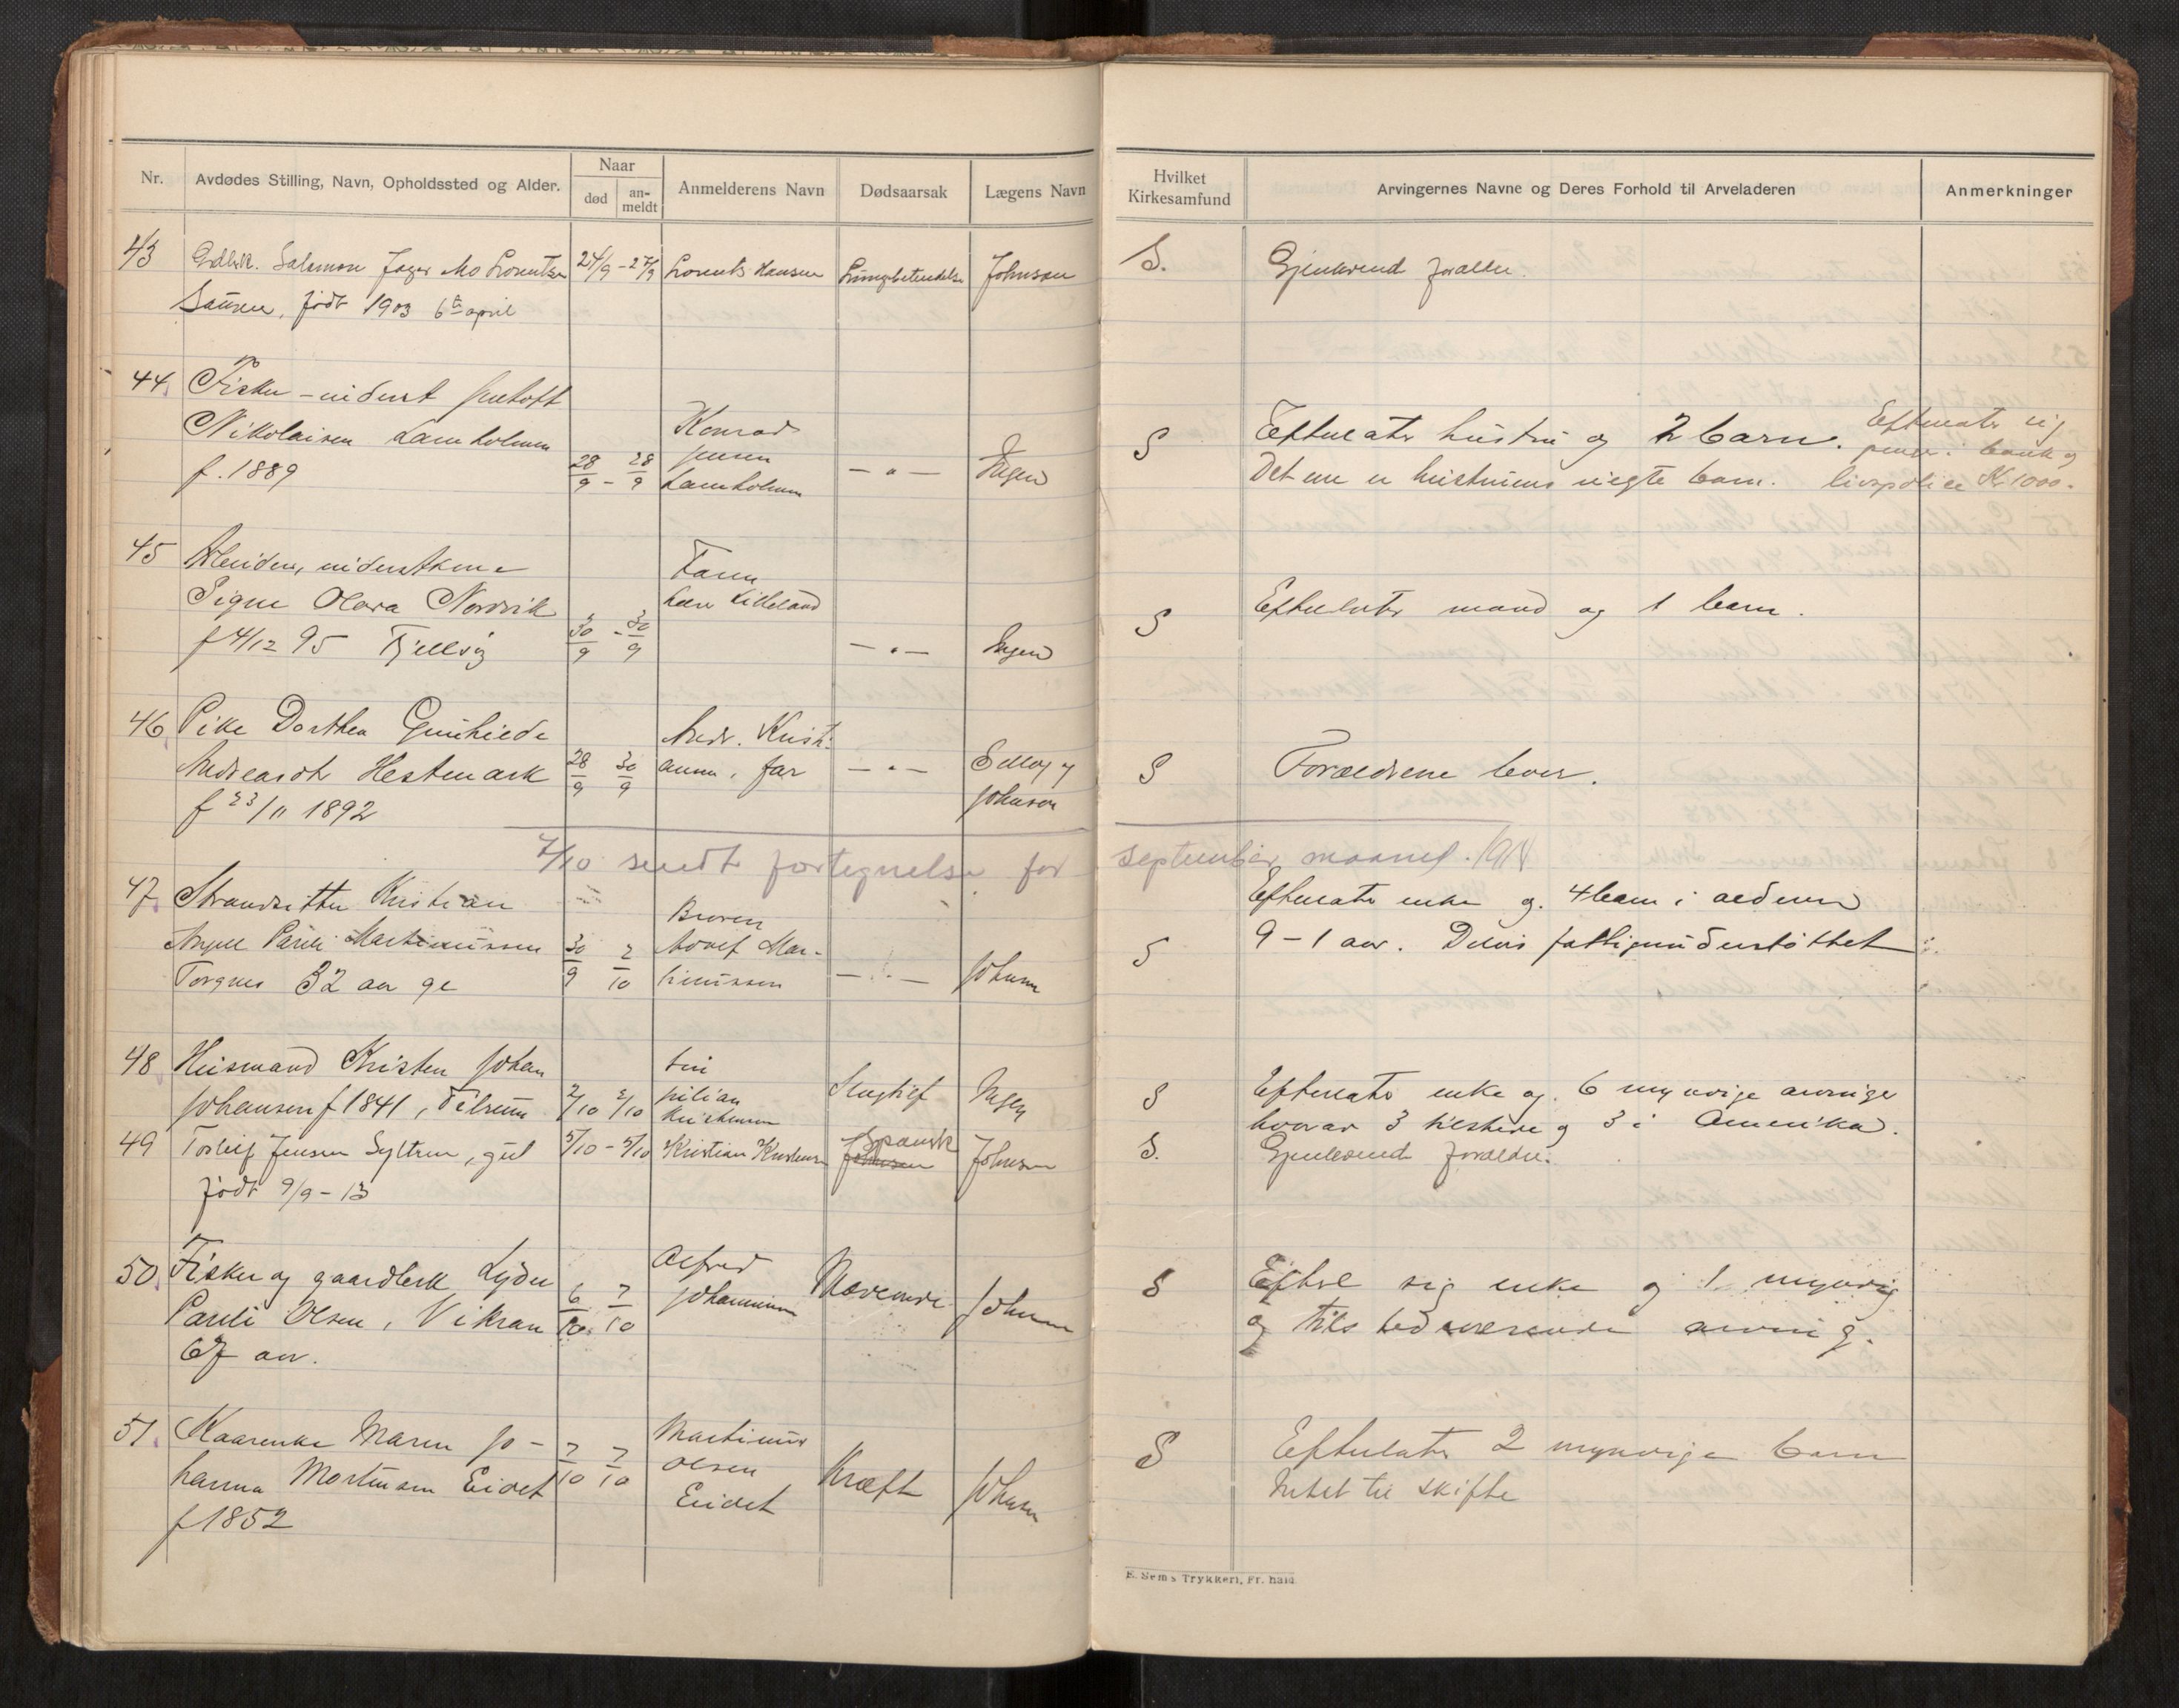 Nr.
Avdødes Stilling, Navn, Opholdssted og Alder.
Naar
død
an-
meldt
Anmelderens Navn
Dødsaarsak
Lægens Navn
Hvilket
Kirkesamfund
Arvingernes Navne og Deres Forhold til Arveladeren
Anmerkninger
43 Salomon Mo Lorentz 24/9 - 27/9 Lorents Hansen Lungebetendelse Johnsen S. Gjenlevend forældre.
født 1903 6te april
44. Fisker
Nikolaisen Lamholmen Konrad
f. 1889 28/9 - 28/9 Jensen — " — Ingen S Efterlater hustru og 2 barn. Efterlater sig
Lamholmen Det ene er hustruens uegte barn. penge i bank og
livspolice Kr 1000.
45
Signe Olava Nordvik 30/9 - 30/9 Faren
f 4/12 95 — " — Ingen S Efterlater mand og 1 barn.
46 Pike Dorthea Andr. Krist.
Andreasdt Hestemark 28/9 30/9 far — " — og S Forældrene lever.
f 23/11 1892 Johnsen
7/10 sendt fortegnelse for september maaned. 1918
47. Strandsitter Kristian Efterlater enke og 4 barn i alderen
Pauli Martinussen 30/9 2/10 Broren 9 - 1 aar. Delvis fattigunderstøttet
Torgnes 32 aar g Adolf Mar-
tinussen — " — Johnsen S
48 Husmand Kristen Johan
Johansen f 1841, 2/10 2/10 Slagtilf Ingen S Efterlater enke og 6 myndige arvinger
Kristensen hvorav 3 tilstede og 3 i Amerika.
49 Torleif Jensen Syltern, gut 5/10 - 5/10 Kristian Kristensen Spansk Johnsen S. Gjenlevend forældre.
født 9/9 - 13
50. Fisker og gaardbruk Lyder Alfred
Pauli Olsen, Vikran 6/10 7/10 Johannesen Johnsen S Efterl sig enke og 1 myndig
67 aar. og tilstedværende arving.
51. Kaarenke Maren Jo- 7/10 7/10 Martinus
hanna Mortensen Eidet Olsen Kræft Johnsen S Efterlater 2 myndige barn
f 1852 Eidet Intet til skifte
E. Sem's Trykkeri, Fr. hald.